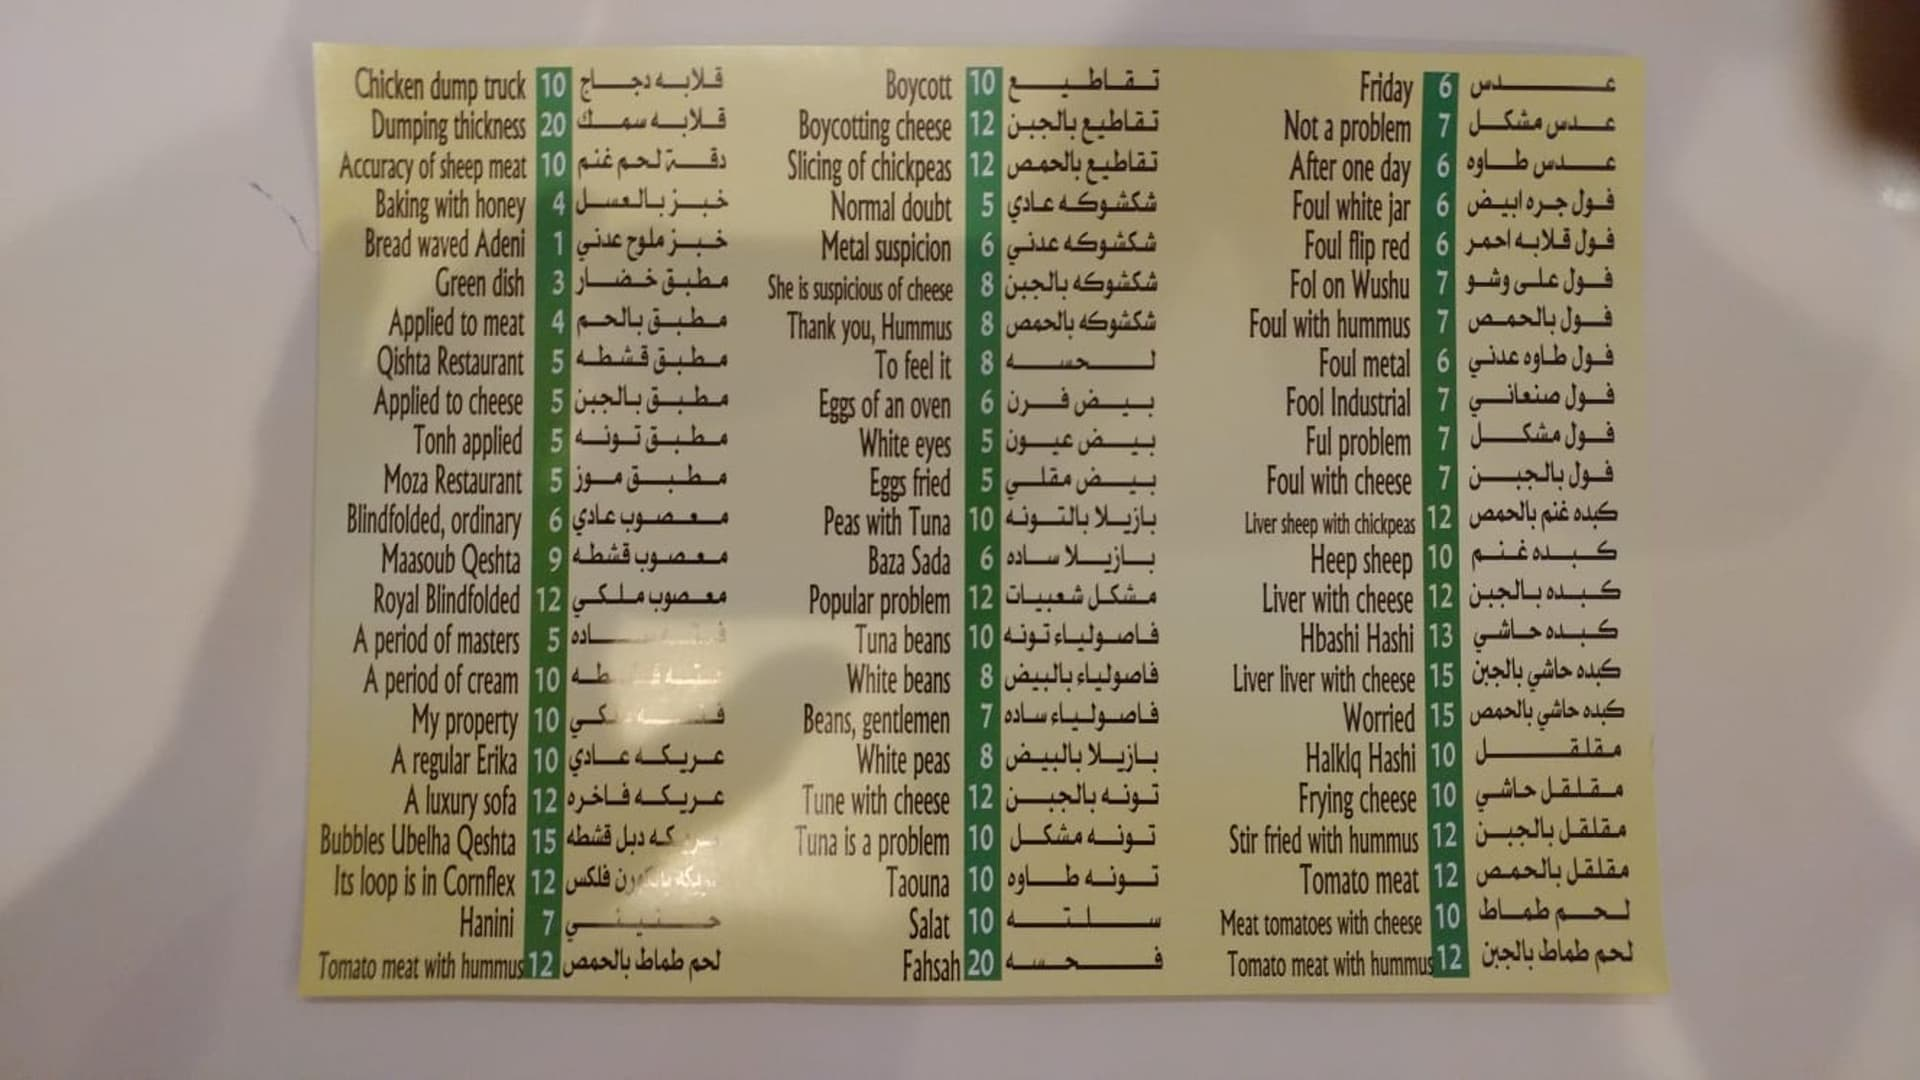 Chicken dump truck 10 قلابه دجاج
Dumping thickness 20 قلابه سمك
Accuracy of sheep meat 10 دقة لحم غنم
Baking with honey 4 خبز بالعسل
Bread waved Adeni 1 خبز ملوح عدني
Green dish 3 مطبق خضار
Applied to meat 4 مطبق بالحم
Qishta Restaurant 5 مطبق قشطه
Applied to cheese 5 مطبق بالجبن
Tonh applied 5 مطبق تونه
Moza Restaurant 5 مطبق موز
Blindfolded, ordinary 6 معصوب عادي
Maasoub Qeshta 9 معصوب قشطه
Royal Blindfolded 12 معصوب ملكي
A period of masters 5
A period of cream 10
My property 10
A regular Erika 10 عريكه عادي
A luxury sofa 12 عريكه فاخره
Bubbles Ubelha Qeshta 15 دبل قشطه
Its loop is in Cornflex 12 فلكس
Hanini 7 حنيني
Tomato meat with hummus 12 لحم طماط بالحمص
Boycott 10 تقاطيع
Boycotting cheese 12 تقاطيع بالجبن
Slicing of chickpeas 12 تقاطيع بالحمص
Normal doubt 5 شكشوكه عادي
Metal suspicion 6 شكشوكه عدني
She is suspicious of cheese 8 شكشوكه بالجبن
Thank you, Hummus 8 شكشوكه بالحمص
To feel it 8 لحسه
Eggs of an oven 6 بيض فرن
White eyes 5 بيض عيون
Eggs fried 5 بيض مقلي
Peas with Tuna 10 بازيلا بالتونه
Baza Sada 6 بازيلا ساده
Popular problem 12 مشكل شعبيات
Tuna beans 10 فاصولياء تونه
White beans 8 فاصولياء بالبيض
Beans, gentlemen 7 فاصولياء ساده
White peas 8 بازيلا بالبيض
Tune with cheese 12 تونه بالجبن
Tuna is a problem 10 تونه مشكل
Taouna 10 تونه طاوه
Salat 10 سلته
Fahsah 20 فحسه
Friday 6 عدس
Not a problem 7 عدس مشكل
After one day 6 عدس طاوه
Foul white jar 6 فول جره ابيض
Foul flip red 6 فول قلابه احمر
Fol on Wushu 7 فول على وشو
Foul with hummus 7 فول بالحمص
Foul metal 6 فول طاوه عدني
Fool Industrial 7 فول صنعاني
Ful problem 7 فول مشكل
Foul with cheese 7 فول بالجبن
Liver sheep with chickpeas 12 كبده غنم بالحمص
Heep sheep 10 كبده غنم
Liver with cheese 12 كبده بالجبن
Hbashi Hashi 13 كبده حاشي
Liver liver with cheese 15 كبده حاشي بالجبن
Worried 15 كبده حاشي بالحمص
Halklq Hashi 10 مقلقل
Frying cheese 10 مقلقل حاشي
Stir fried with hummus 12 مقلقل بالجبن
Tomato meat 12 مقلقل بالحمص
Meat tomatoes with cheese 10 لحم طماط
Tomato meat with hummus 12 لحم طماط بالجبن